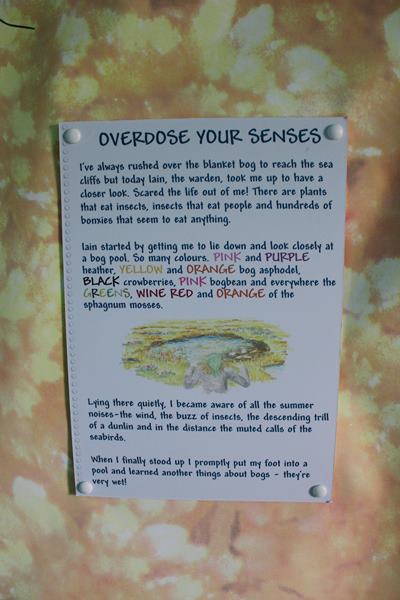 OVERDOSE YOUR SENSES
I've always rushed over the blanket bog to reach the sea
cliffs but today Iain, the warden, took me up to have a
closer look. Scared the life out of me! There are plants
that eat insects, insects that eat people and hundreds of
bonxies that seem to eat anything.
Iain started by getting me to lie down and look closely at
a bog pool. So many colours. PINK and PURPLE
heather, YELLOW and ORANGE bog asphodel,
BLACK crowberries, PINK bogbean and everywhere the
GREENS, WINE RED and ORANGE of the
sphagnum mosses.
Lying there quietly, I became aware of all the summer
noises-the wind, the buzz of insects, the descending trill
of a dunlin and in the distance the muted calls of the
seabirds.
When I finally stood up I promptly put my foot into a
pool and learned another things about bogs - they're
very wet!